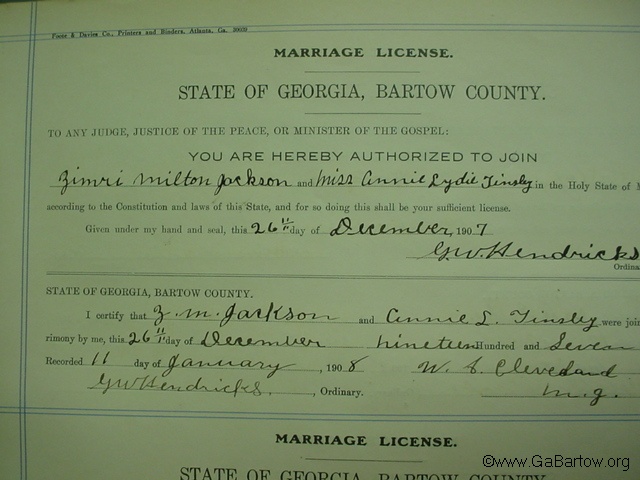 Foote & Davies Co., Printers and Binders, Atlanta, Ga. 20029
MARRIAGE LICENSE.
STATE OF GEORGIA, BARTOW COUNTY.
TO ANY JUDGE, JUSTICE OF THE PEACE, OR MINISTER OF THE GOSPEL:
YOU ARE HEREBY AUTHORIZED TO JOIN
Zimri Milton Jackson and Miss Annie Lydie Tinsley in the Holy State of M
according to the Constitution and laws of this State, and for so doing this shall be your sufficient license.
Given under my hand and seal, this 26th day of December, 1907
G.W. Hendricks
Ordina
STATE OF GEORGIA, BARTOW COUNTY.
I certify that Z. M. Jackson and Annie L. Tinsley were join
rimony by me, this 26th day of December nineteen Hundred and Seven
Recorded 11 day of January, 1908 W. S. Cleveland
GW Hendricks., Ordinary. M. J.
MARRIAGE LICENSE.
STATE OF GEORGIA, BARTOW COUNTY.
©www.GaBartow.org